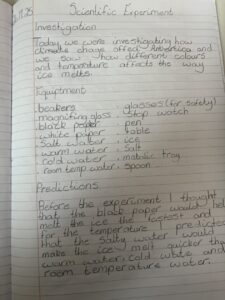 11.25
Scientific Experiment
Investigation
Today we were investigating how
climate change affed Antartica and
we saw how different colours
and temperature affects the way
ice melts.
Equiptment
beakers . glasses (for safety)
magnifying glass . stop watch
black paper . pen
white paper . table
Salt water . ice
warm water . salt
cold water . metalic tray
room temp water . spoon
Predictions
Before the experiment I thought
that the black paper would help
melt the ice the fastest and
for the temperature I predicted
that the salty water would
make the ice melt quicker than
warm water, cold water and
room temperature water.